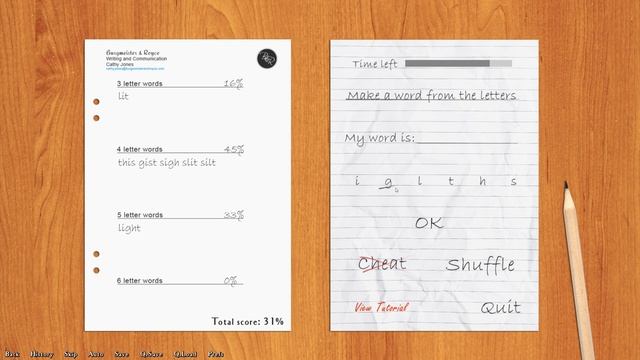 Burgmeister & Royce
Writing and Communication
Cathy Jones
3 letter words 16%
lit
4 letter words 45%
this gist sigh slit silt
5 letter words 33%
light
6 letter words 0%
Total score: 31%
Time left
Make a word from the letters
My word is:
i g l t h s
OK
Cheat Shuffle
View Tutorial Quit
Back History Skip Auto Save Q.Save Q.Load Prefs